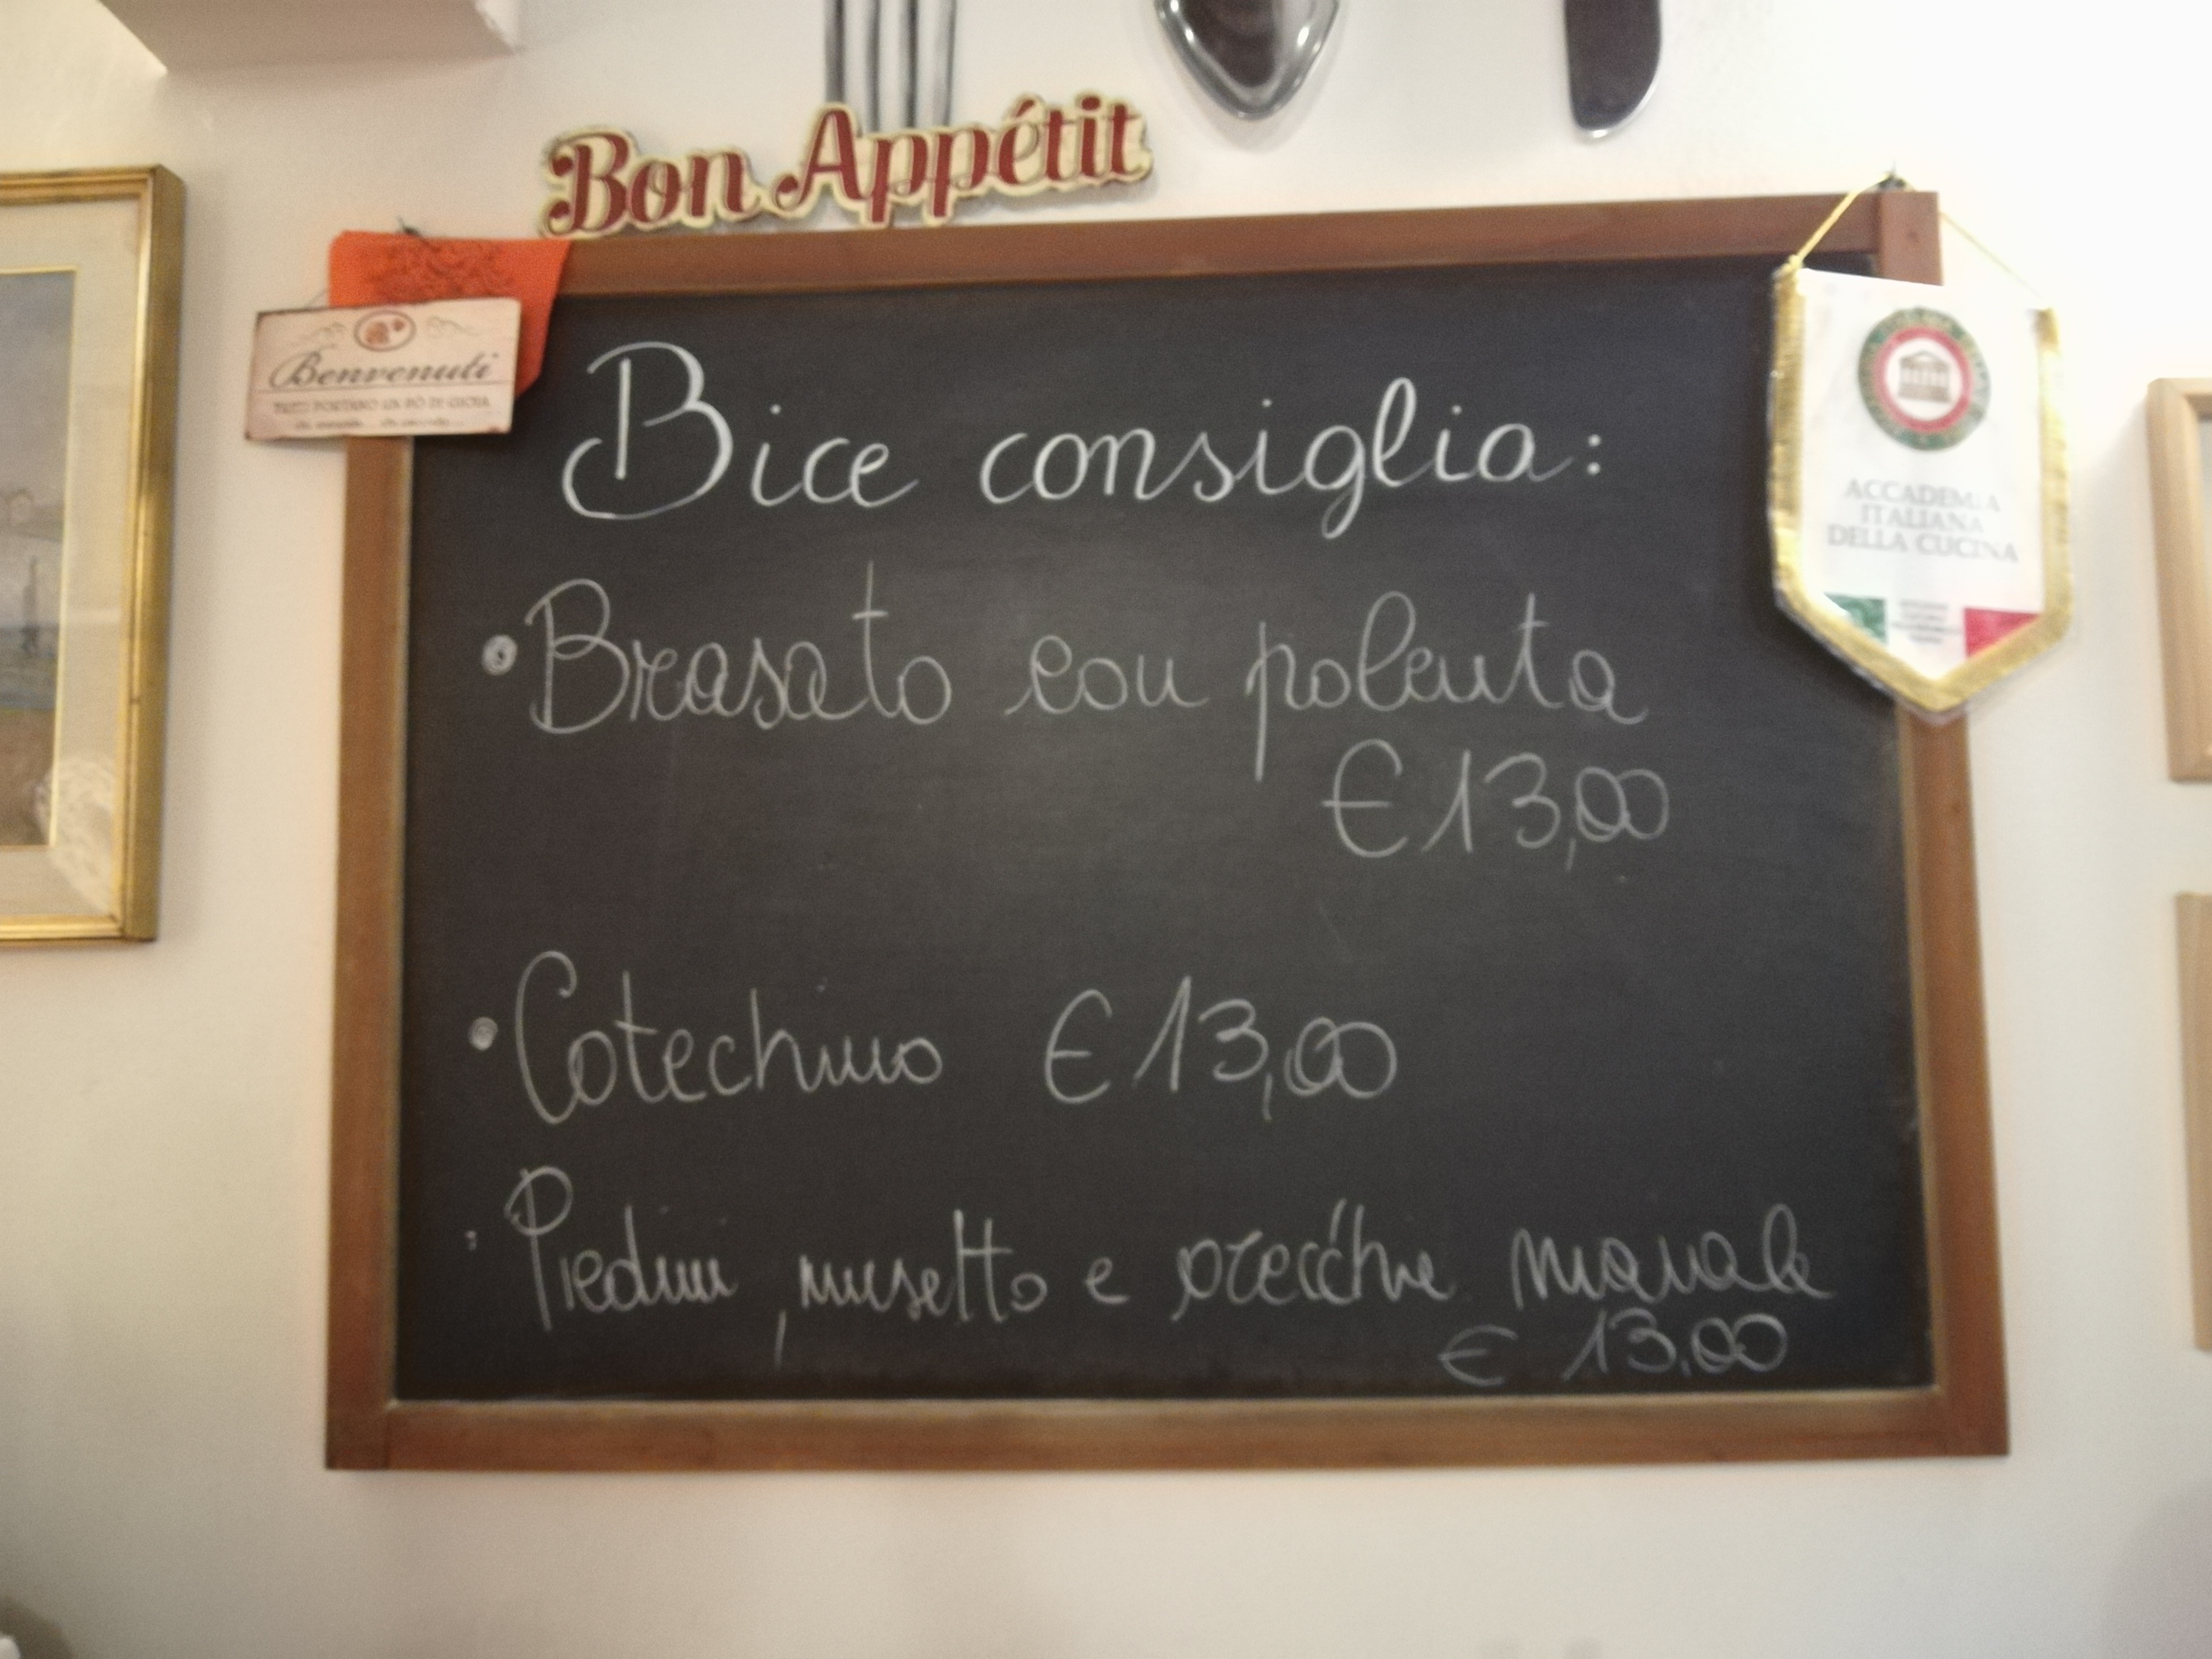 Bon Appétit
Benvenuti
TUTTI PORTANO UN PÒ DI GIOIA
Bice consiglia:
• Brasato con polenta
€ 13,00
• Cotechino € 13,00
• Piedini, musetto e orecchie maiale
€ 13,00
ACCADEMIA
ITALIANA
DELLA CUCINA